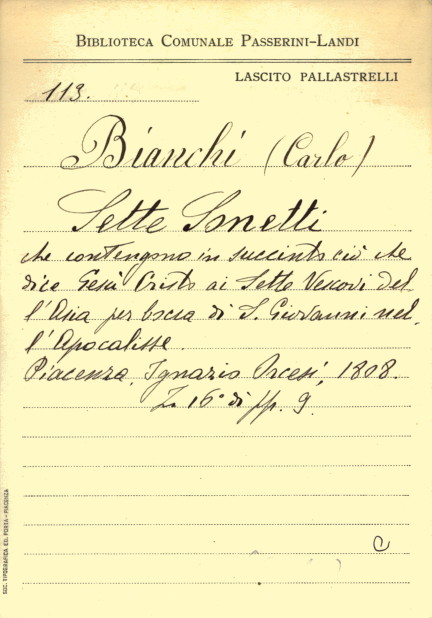 BIBLIOTECA COMUNALE PASSERINI-LANDI
LASCITO PALLASTRELLI
113.
Bianchi (Carlo)
Sette Sonetti
che contengono in succinto ciò che
dice Gesù Cristo ai Sette Vescovi del
l'Asia per bocca di S. Giovanni nel
l'Apocalisse.
Piacenza, Ignazio Orcesi, 1808.
In 16° di pp. 9.
SOC. TIPOGRAFICA ED. PORTA - PIACENZA